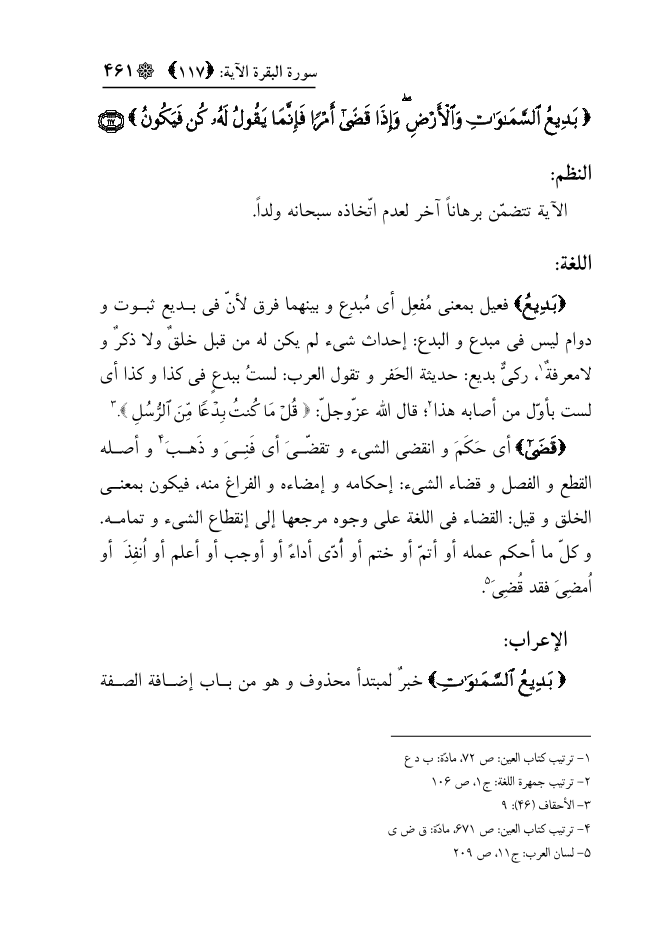 سورة البقرة الآية: ﴿١١٧﴾ ۴۶۱
﴿ بَدِيعُ ٱلسَّمَـٰوَٰتِ وَٱلْأَرْضِ ۖ وَإِذَا قَضَىٰٓ أَمْرًا فَإِنَّمَا يَقُولُ لَهُۥ كُن فَيَكُونُ ﴾ ١١٧
النظم:
الآية تتضمّن برهاناً آخر لعدم اتّخاذه سبحانه ولداً.
اللغة:
﴿بَدِيعُ﴾ فعيل بمعنى مُفعِل أى مُبدِع و بينهما فرق لأنّ فى بـديع ثبـوت و
دوام ليس فى مبدع و البدع: إحداث شىء لم يكن له من قبل خلقٌ ولا ذكرٌ و
لامعرفةٌ١، ركىٌّ بديع: حديثة الحَفر و تقول العرب: لستُ ببدعٍ فى كذا و كذا أى
لست بأوّل من أصابه هذا٢؛ قال الله عزّوجلّ: ﴿ قُلْ مَا كُنتُ بِدْعًا مِّنَ ٱلرُّسُلِ ﴾.٣
﴿قَضَىٰٓ﴾ أى حَكَمَ و انقضى الشىء و تقضّـىَ أى فَنِـىَ و ذَهـبَ۴ و أصـله
القطع و الفصل و قضاء الشىء: إحكامه و إمضاءه و الفراغ منه، فيكون بمعنـى
الخلق و قيل: القضاء فى اللغة على وجوه مرجعها إلى إنقطاع الشىء و تمامـه.
و كلّ ما أحكم عمله أو أتمّ أو ختم أو أُدّى أداءً أو أوجب أو أعلم أو اُنفِذَ أو
اُمضِىَ فقد قُضِىَ۵.
الإعراب:
﴿ بَدِيعُ ٱلسَّمَـٰوَٰتِ﴾ خبرٌ لمبتدأ محذوف و هو من بـاب إضـافة الصـفة
١- ترتيب كتاب العين: ص ٧٢، مادّة: ب د ع
٢- ترتيب جمهرة اللغة: ج١، ص ١٠۶
٣- الأحقاف (۴۶): ٩
۴- ترتيب كتاب العين: ص ۶٧١، مادّة: ق ض ى
۵- لسان العرب: ج١١، ص ٢٠٩